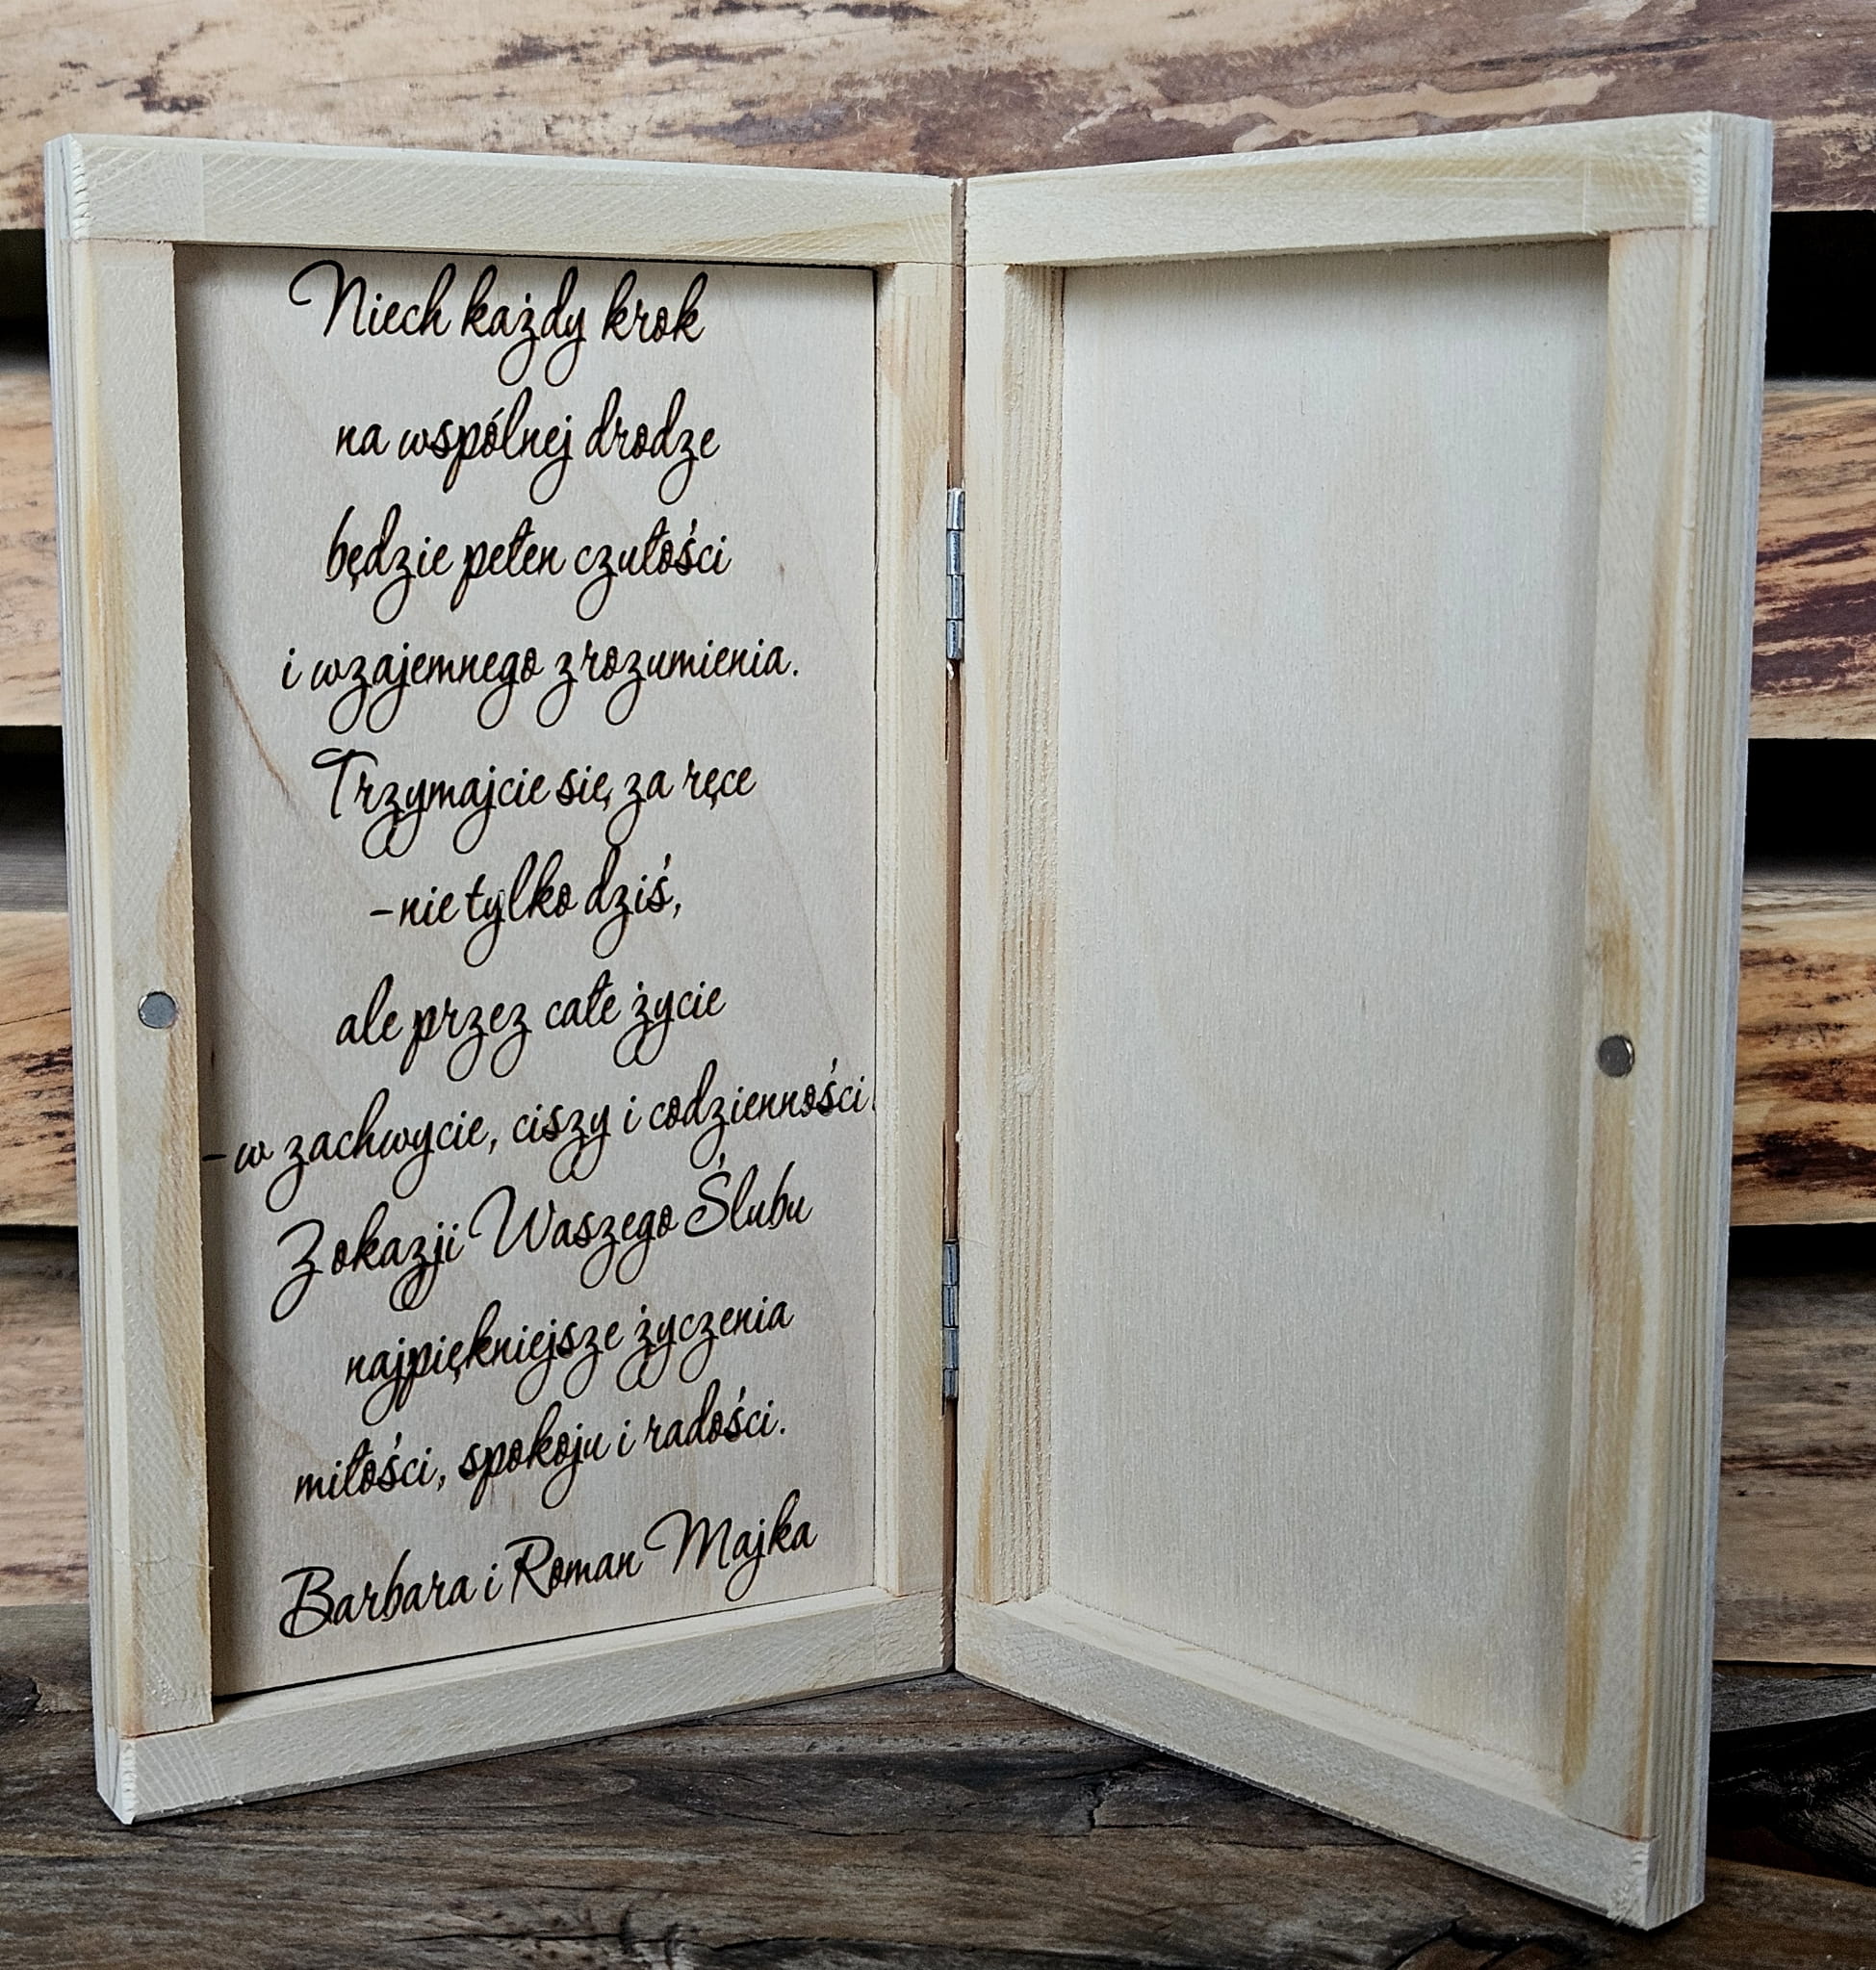 Niech każdy krok
na wspólnej drodze
będzie pełen czułości
i wzajemnego zrozumienia.
Trzymajcie się za ręce
-nie tylko dziś,
ale przez całe życie
-w zachwycie, ciszy i codzienności.
Z okazji Waszego Ślubu
najpiękniejsze życzenia
miłości, spokoju i radości.
Barbara i Roman Majka